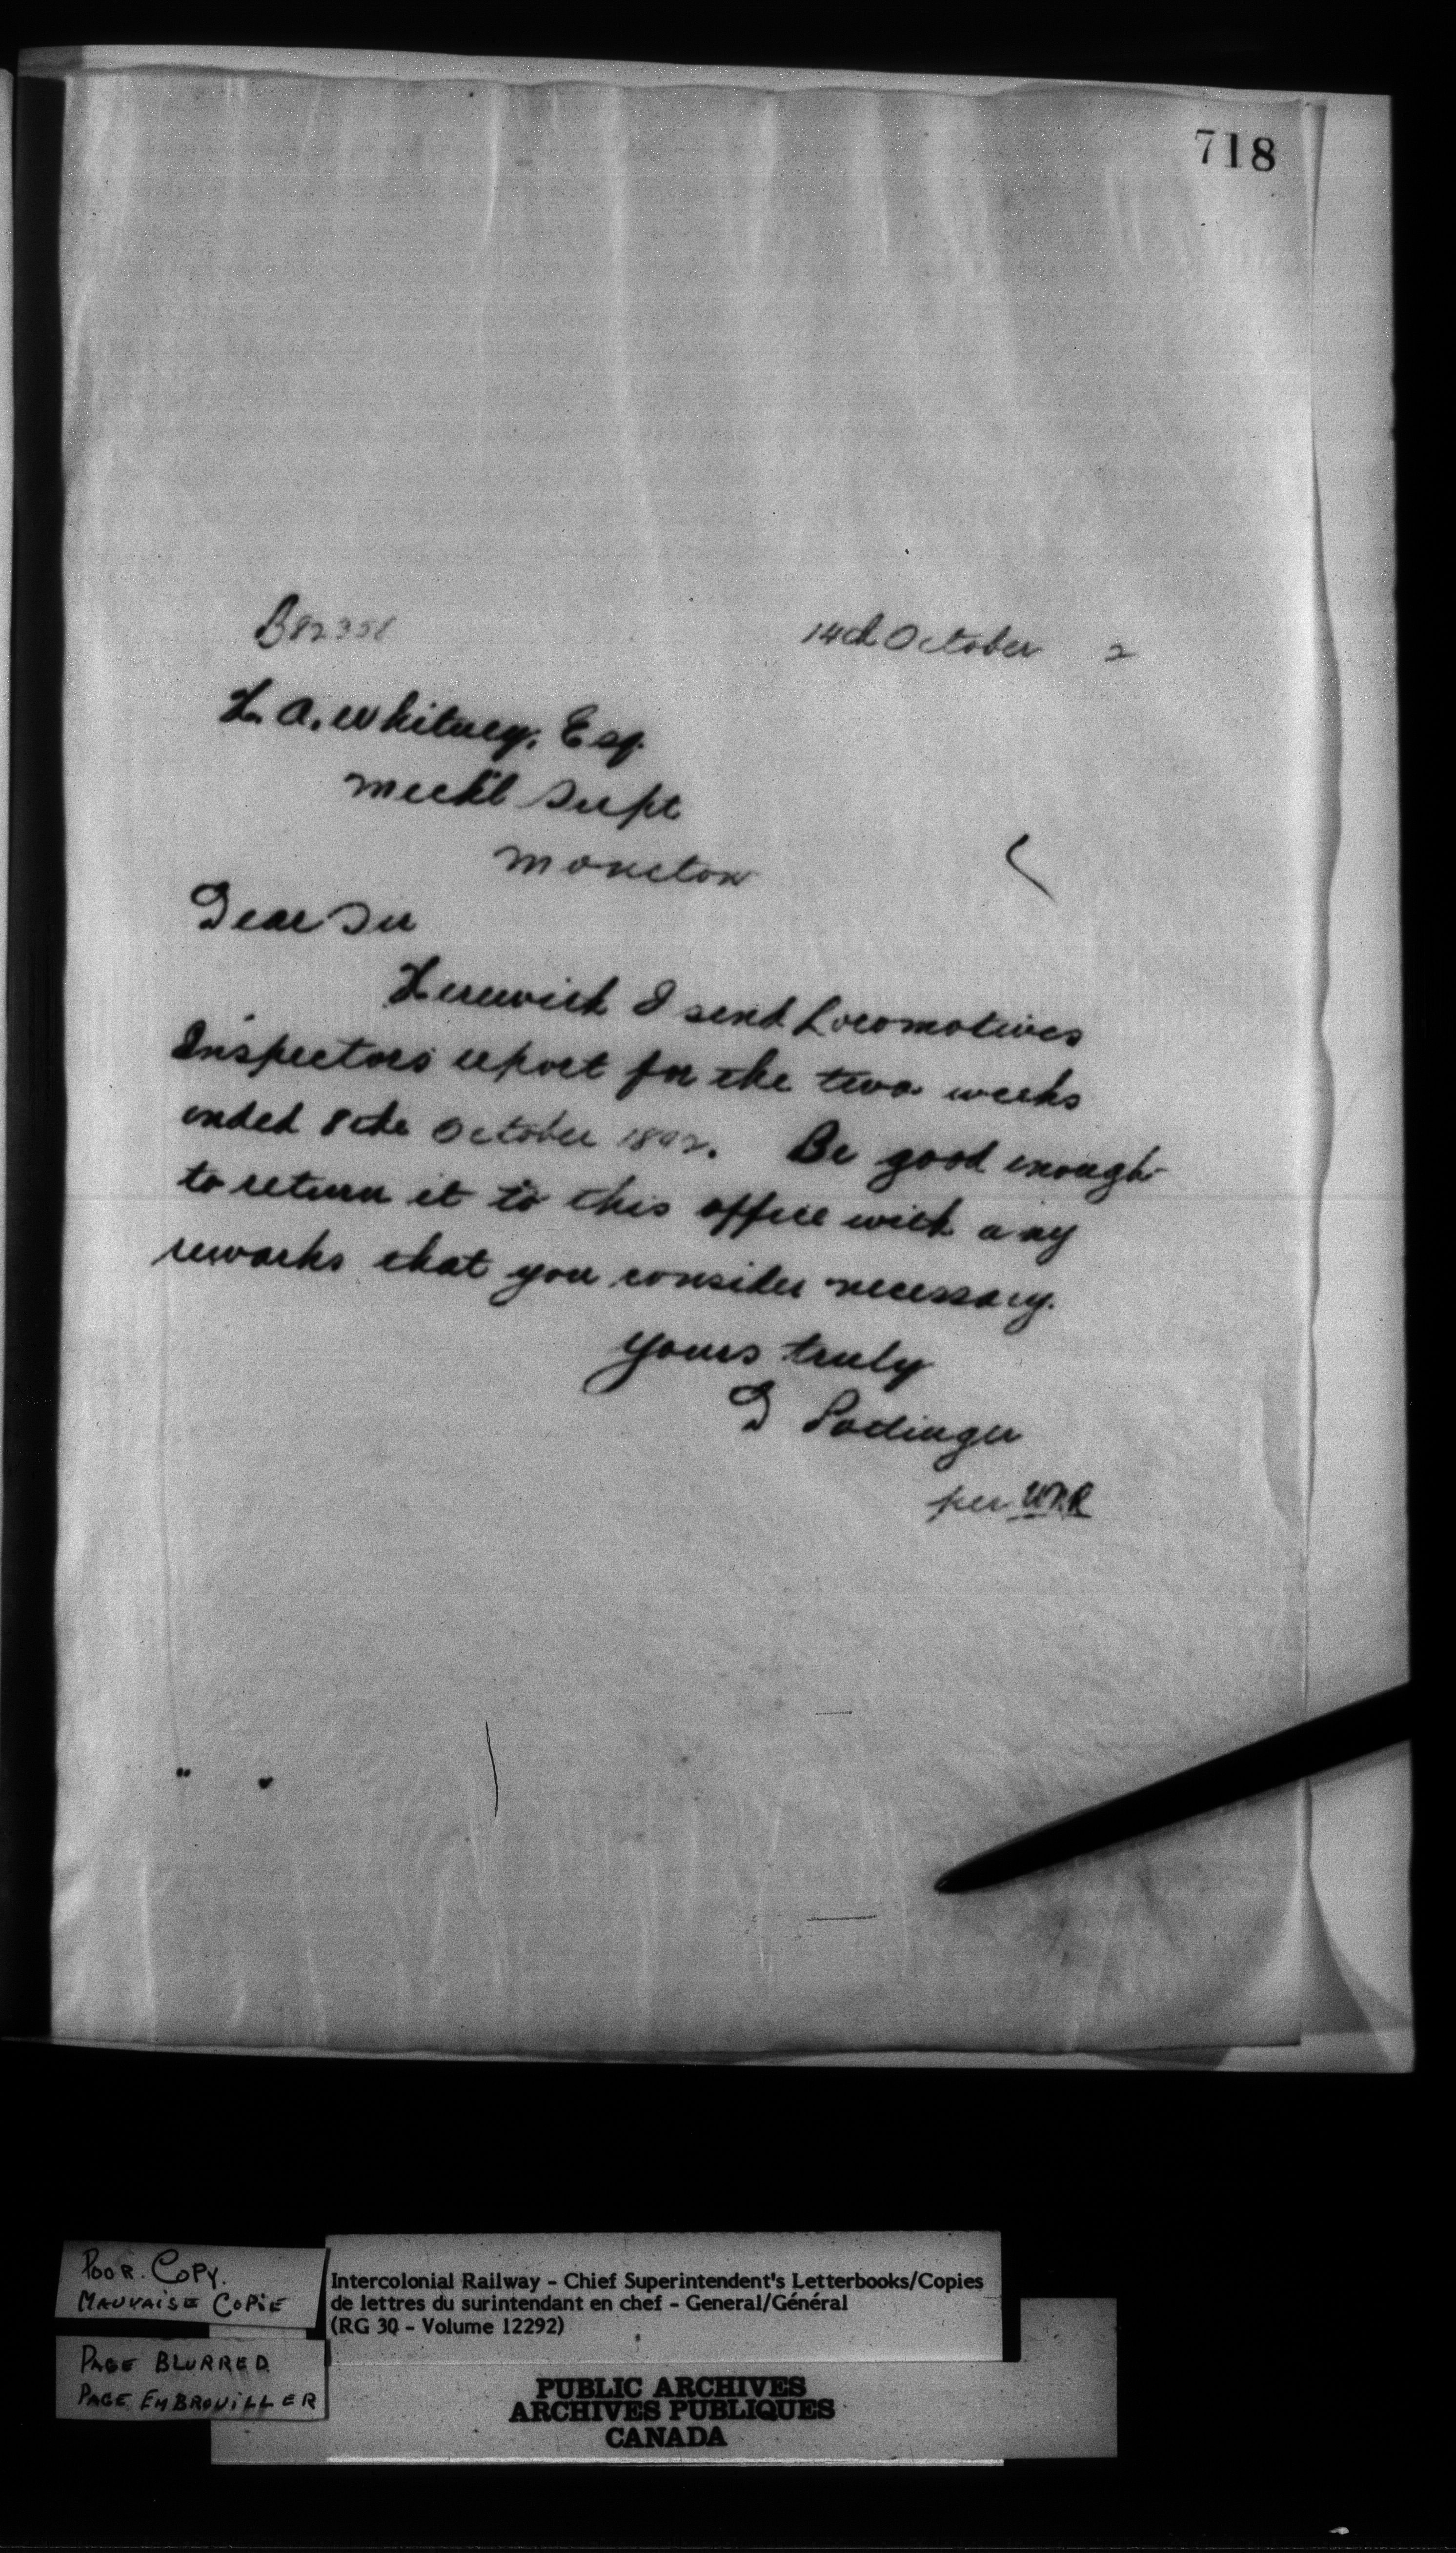 718
B82358
14th October 2
H. A. Whitney, Esq.
Mech'l Supt
Moncton
Dear Sir
Herewith I send Locomotives
Inspectors report for the two weeks
ended 8th October 1892. Be good enough
to return it to this office with any
remarks that you consider necessary.
Yours truly
D Pottinger
per
POOR. COPY.
MAUVAISE COPIE
PAGE BLURRED
PAGE EMBROUILLER
Intercolonial Railway - Chief Superintendent's Letterbooks/Copies
de lettres du surintendant en chef - General/Général
(RG 30 - Volume 12292)
PUBLIC ARCHIVES
ARCHIVES PUBLIQUES
CANADA